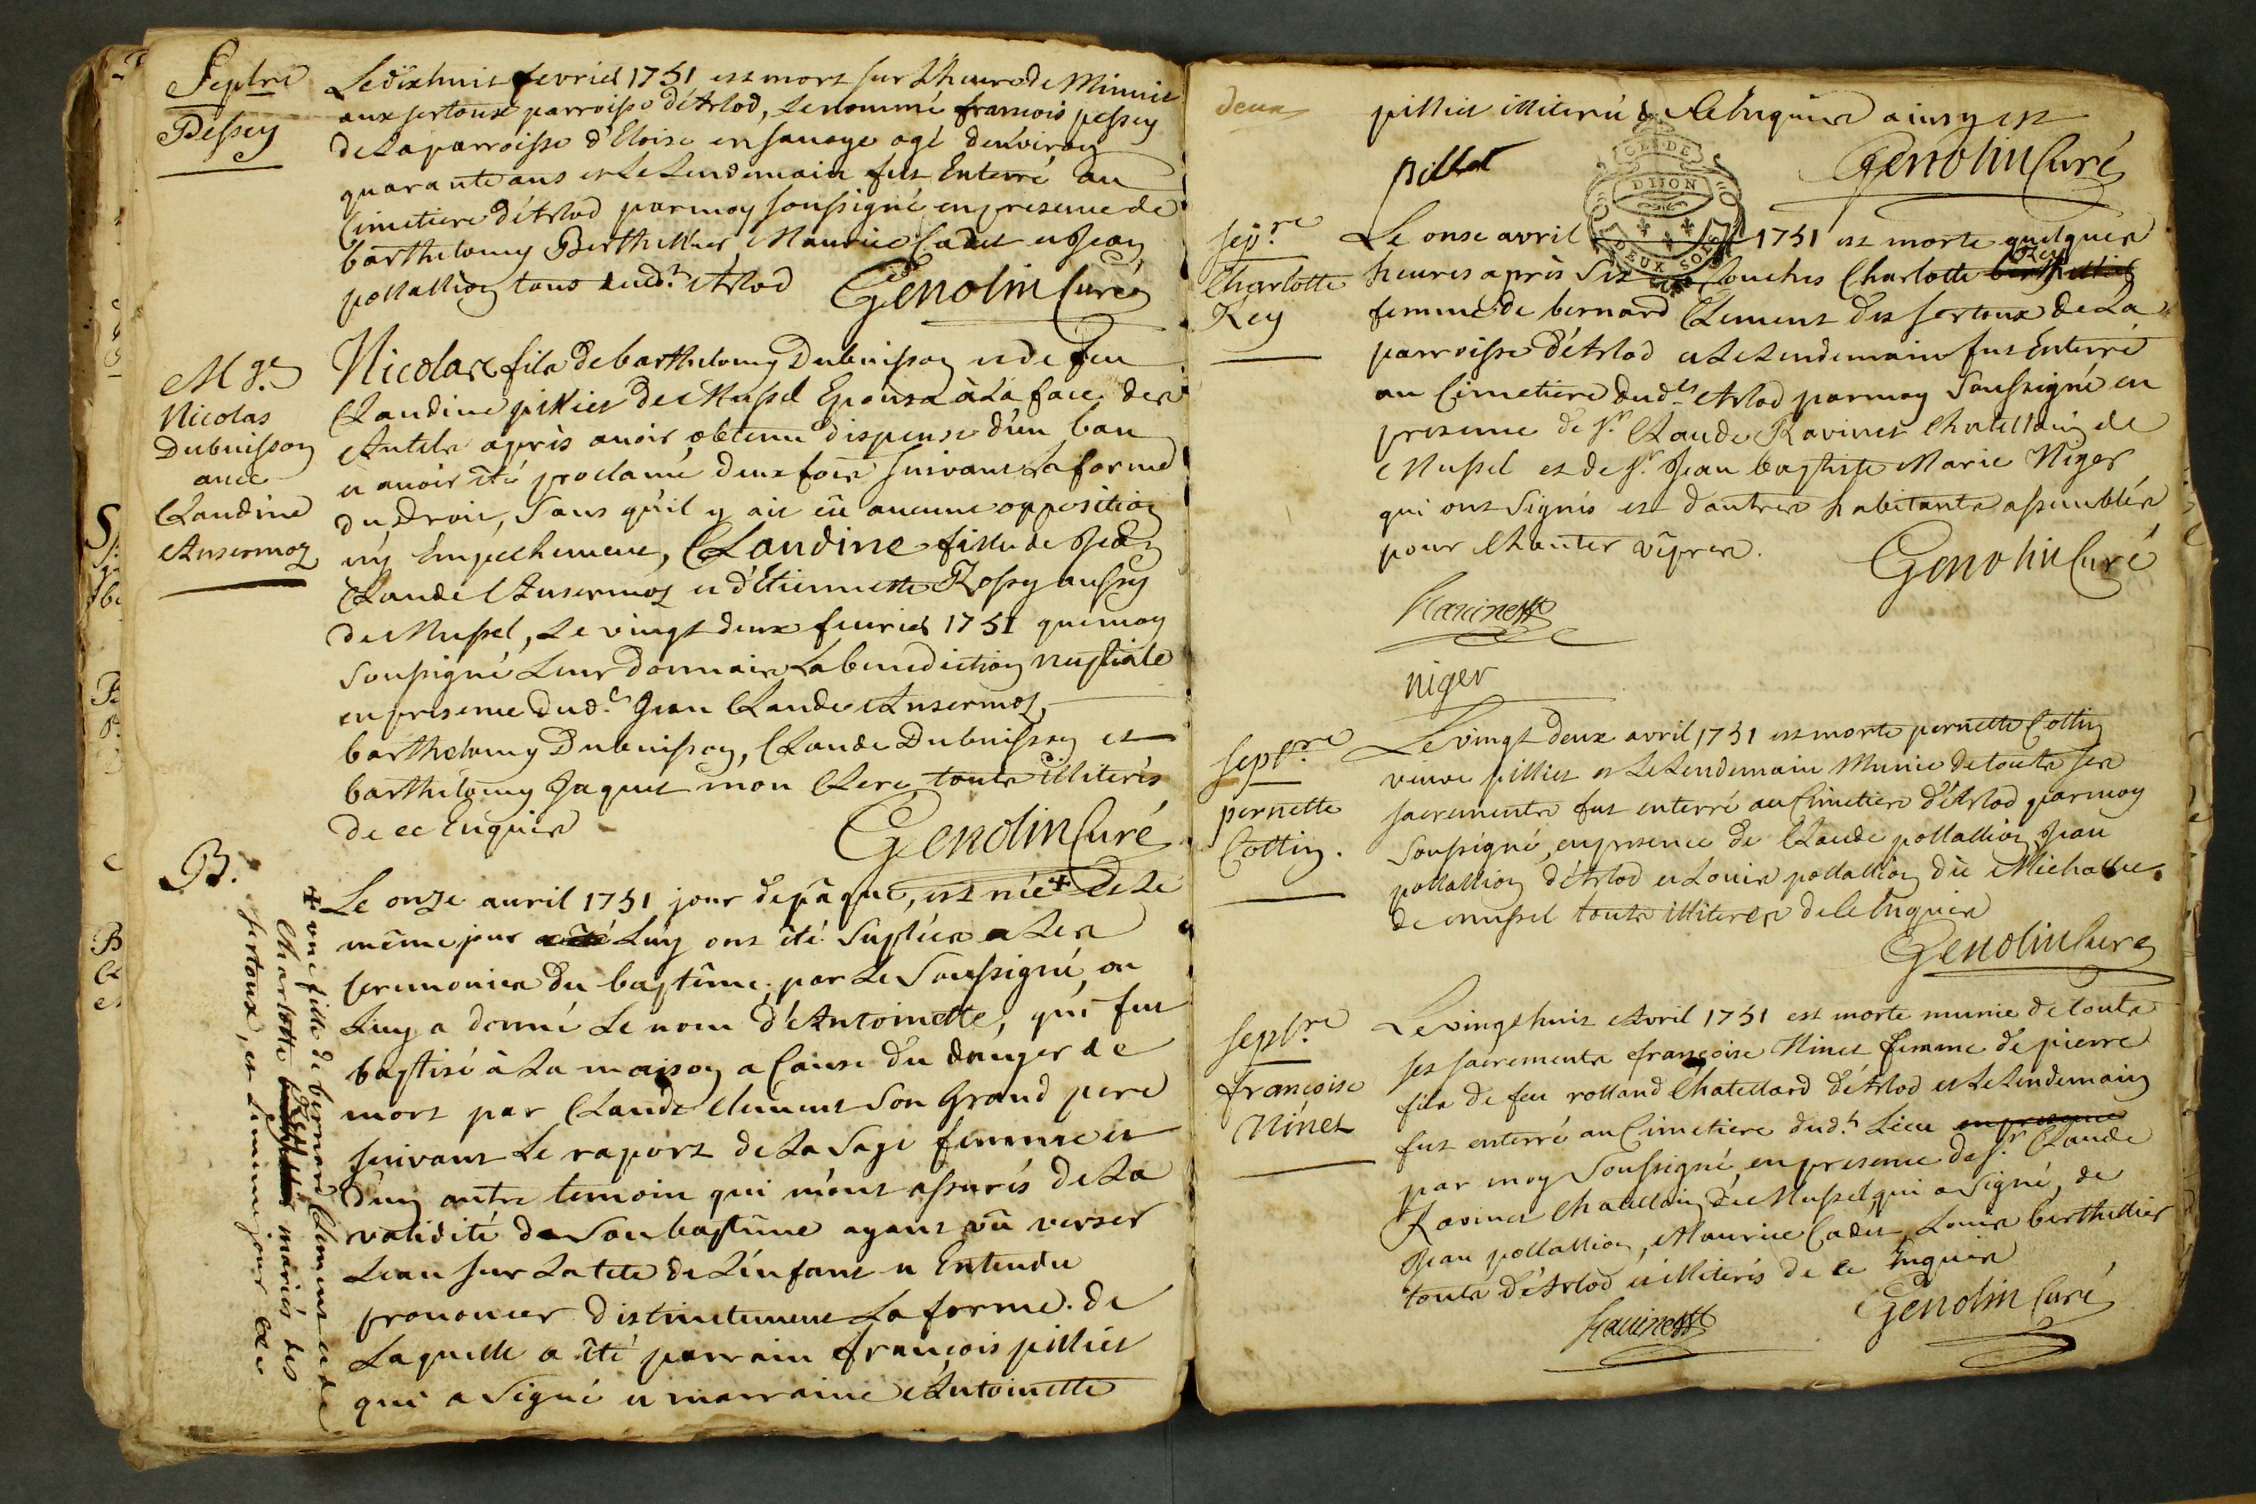 Septre
Pessey
Le dixhuit fevrier 1751 est mort sur Lheure de Minuit
aux sertoux parroisse d'Arlod, Le nommé francois pessey
de La parroisse d'Eloise en savoye agé denviron
quarante ans et Le Lendemain fut Enterré au
Cimetiere d'Arlod par moy soussigné en presence de
barthelemy Berthellier Maurice Cadet et Jean
pollallion tous dudt Arlod Genolin Curé
Mge
Nicolas
Dubuisson
avec
Claudine
Ansermoz
Nicolas fils de barthelemy Dubuisson et de feu
Claudine pillier de Mussel Epousa à La face des
Autels après avoir obtenu dispense d'un ban
et avoir été proclamé deux fois suivant La forme
du Droit, sans qu'il y ait eû aucune opposition
ny Empechement, Claudine fille de Jean
Claude Ansermoz et d'Etiennette Rossy aussy
de Mussel, Le vingt deux fevrier 1751 que moy
soussigné Leur donnair La benediction nuptiale
en presence dudt Jean Claude Ansermoz,
barthelemy Dubuisson, Claude Dubuisson et
barthelemy Jaquet mon Clerc touts illiterés
de ce Enquis
Genolin Curé
B.
Le onze avril 1751 jour de pâque, est née + et Le
même jour a été Luy ont été suplées Les
ceremonies du baptême par Le soussigné, on
Luy a donné Le nom d'Antoinette, qui fut
baptisé à La maison a Cause du danger de
mort par Claude Clement son Grand pere
suivant Le raport de La sage femme et
d'un autre temoin qui m'ont assurés de La
validité de son baptême ayant vû verser
Leau sur La tete de L'enfant et Entendu
prononcer distinctement La forme. de
Laquelle a été parrain françois pillier
qui a signé et marraine Antoinette
+ une fille de bernard Clement et de
Charlotte Rey mariés des
sertoux, et Le meme jour
deux
pillier illiteré de Ce Enquis ainsy est
pillet
Genolin Curé
CEN. DE
DIJON
DEUX SOLS
sepre
Charlotte
Rey
Le onse avril 1751 est morte quelques
heures après ses Couches Charlotte berthellier Rey
femme de bernard Clement des sertoux de La
parroisse d'Arlod et Le Lendemain fut Enterré
au Cimetiere dudt Arlod par moy soussigné en
presence de sr Claude Ravinet Chatellain de
Mussel et de sr Jean baptiste Marie Niger
qui ont signés et d'autres habitants assemblés
pour Chanter vêpres.
Genolin Curé
Ravinet
niger
septre
pernette
Cottin.
Le vingt deux avril 1751 est morte pernette Cottin
veuve pillier et Le Lendemain Munie de touts ses
sacrements fut enterré au Cimetiere d'Arlod par moy
soussigné, en presence de Claude pollallion Jean
pollallion d'Arlod et Louis pollallion dit Michallet
de mussel touts illiterés de Ce Enquis
Genolin Curé
septre
françoise
Ninet
Le vingt huit Avril 1751 est morte munie de touts
ses sacrements françoise Ninet femme de pierre
fils de feu rolland Chatellard d'Arlod et Le Lendemain
fut enterré au Cimetiere dudt Lieu en presence
par moy soussigné, en presence de sr Claude
Ravinet Chatellain de Mussel qui a signé, de
Jean pollallion, Maurice Cadet, Louis berthellier
touts d'Arlod et illiterés de ce Enquis
Ravinet
Genolin Curé